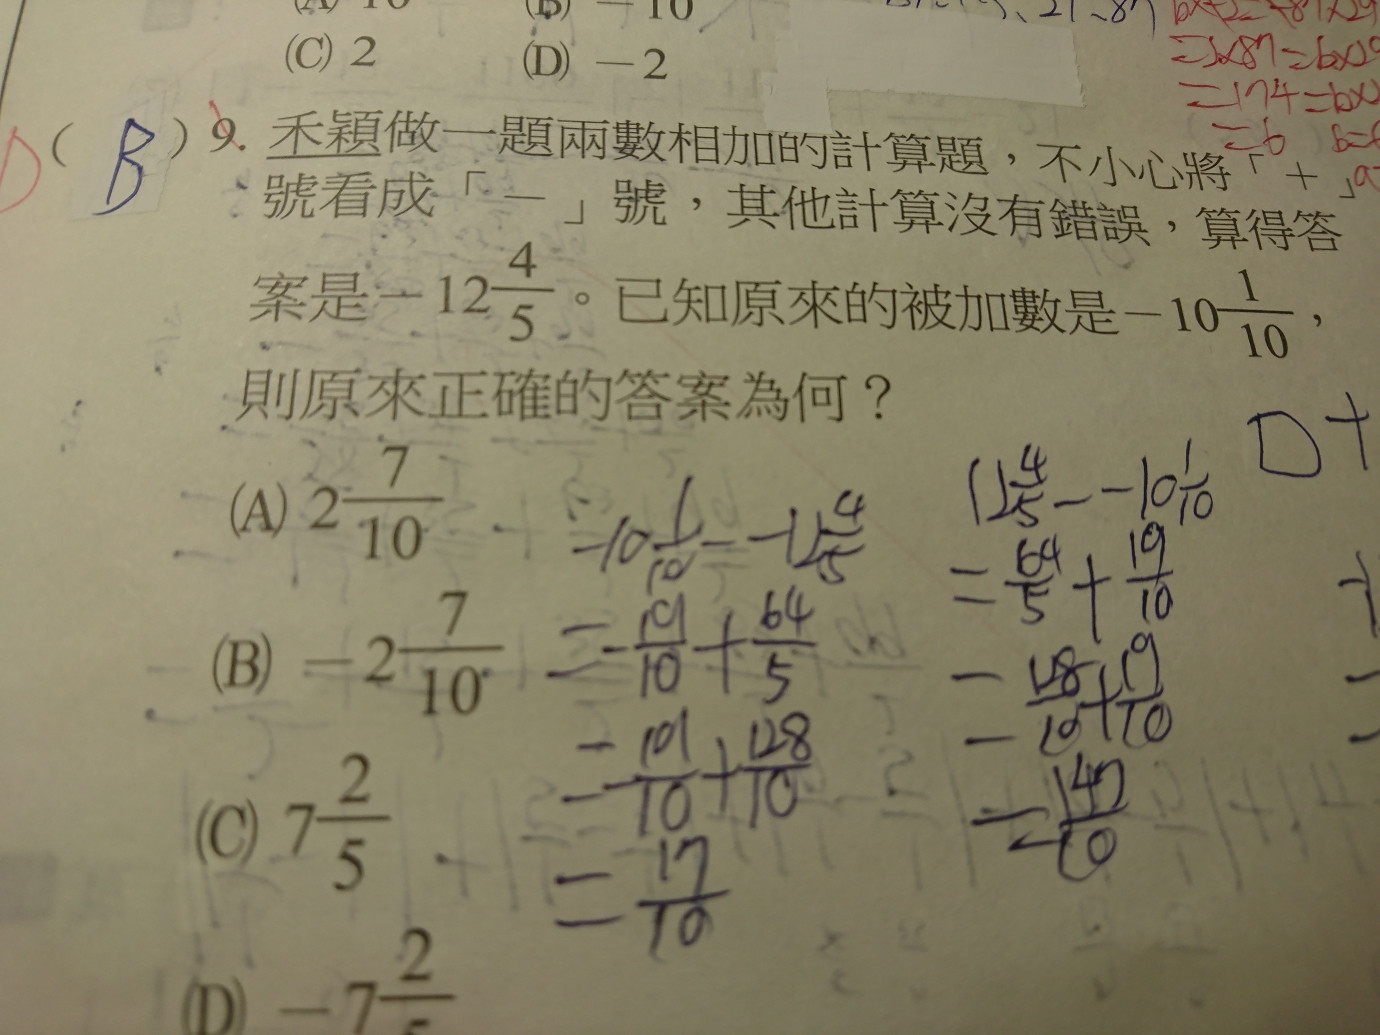 (A) 10 (B) －10
(C) 2 (D) －2
D ( B ) 9. 禾穎做一題兩數相加的計算題，不小心將「＋」
號看成「－」號，其他計算沒有錯誤，算得答
案是－12 4/5。已知原來的被加數是－10 1/10，
則原來正確的答案為何？
(A) 2 7/10
(B) －2 7/10
(C) 7 2/5
(D) －7 2/5
-10 1/10 - -12 4/5
= -101/10 + 64/5
= -101/10 + 128/10
= 17/10
12 4/5 - -10 1/10
= 64/5 + 19/10
= 128/10 + 19/10
= 147/10
D+
=3×87=b×29
=174=b×29
=6